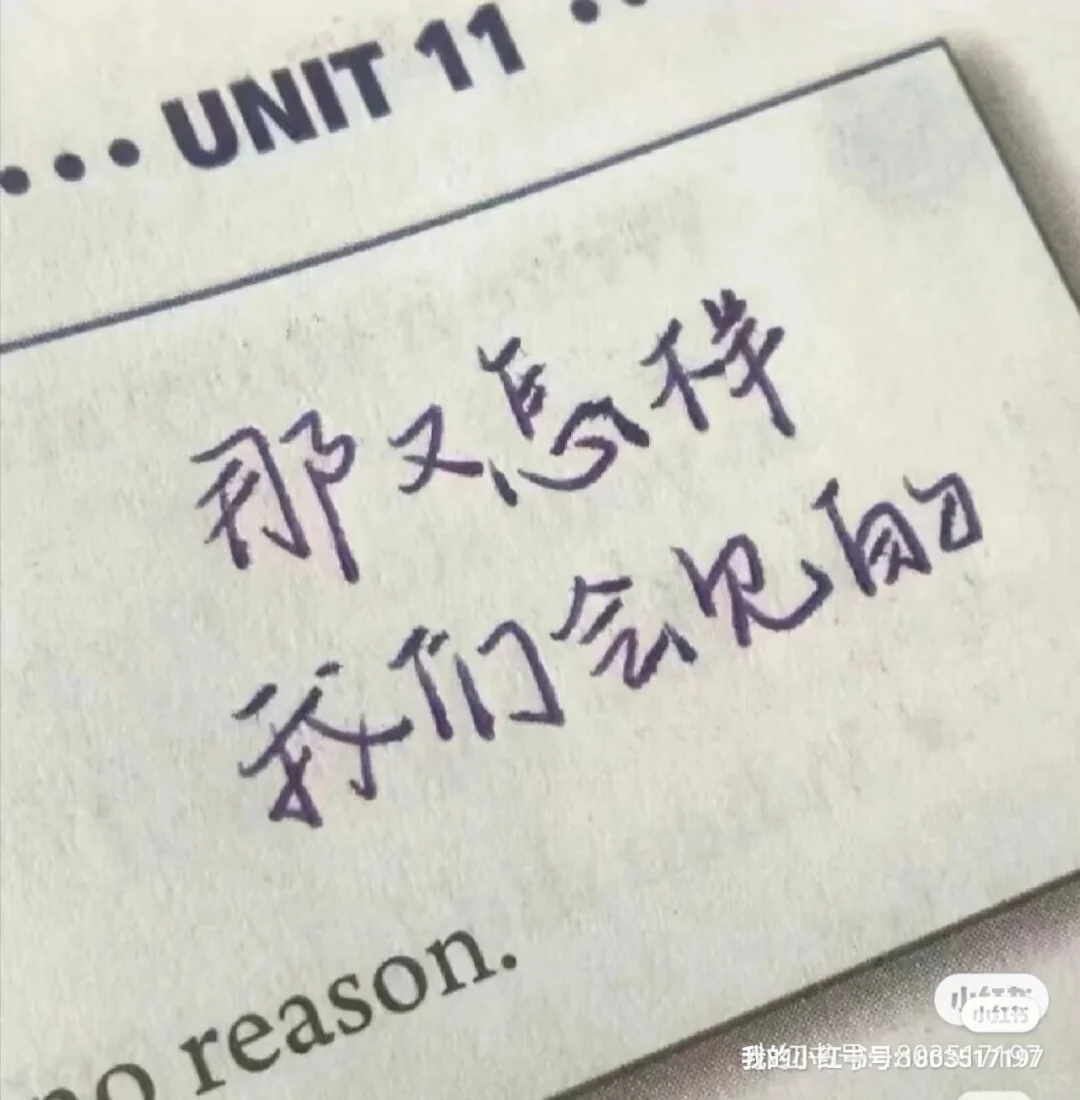 ••• UNIT 11 ••
那又怎样
我们会见的
no reason.
小红书
小红书
我的小红书号:803517197